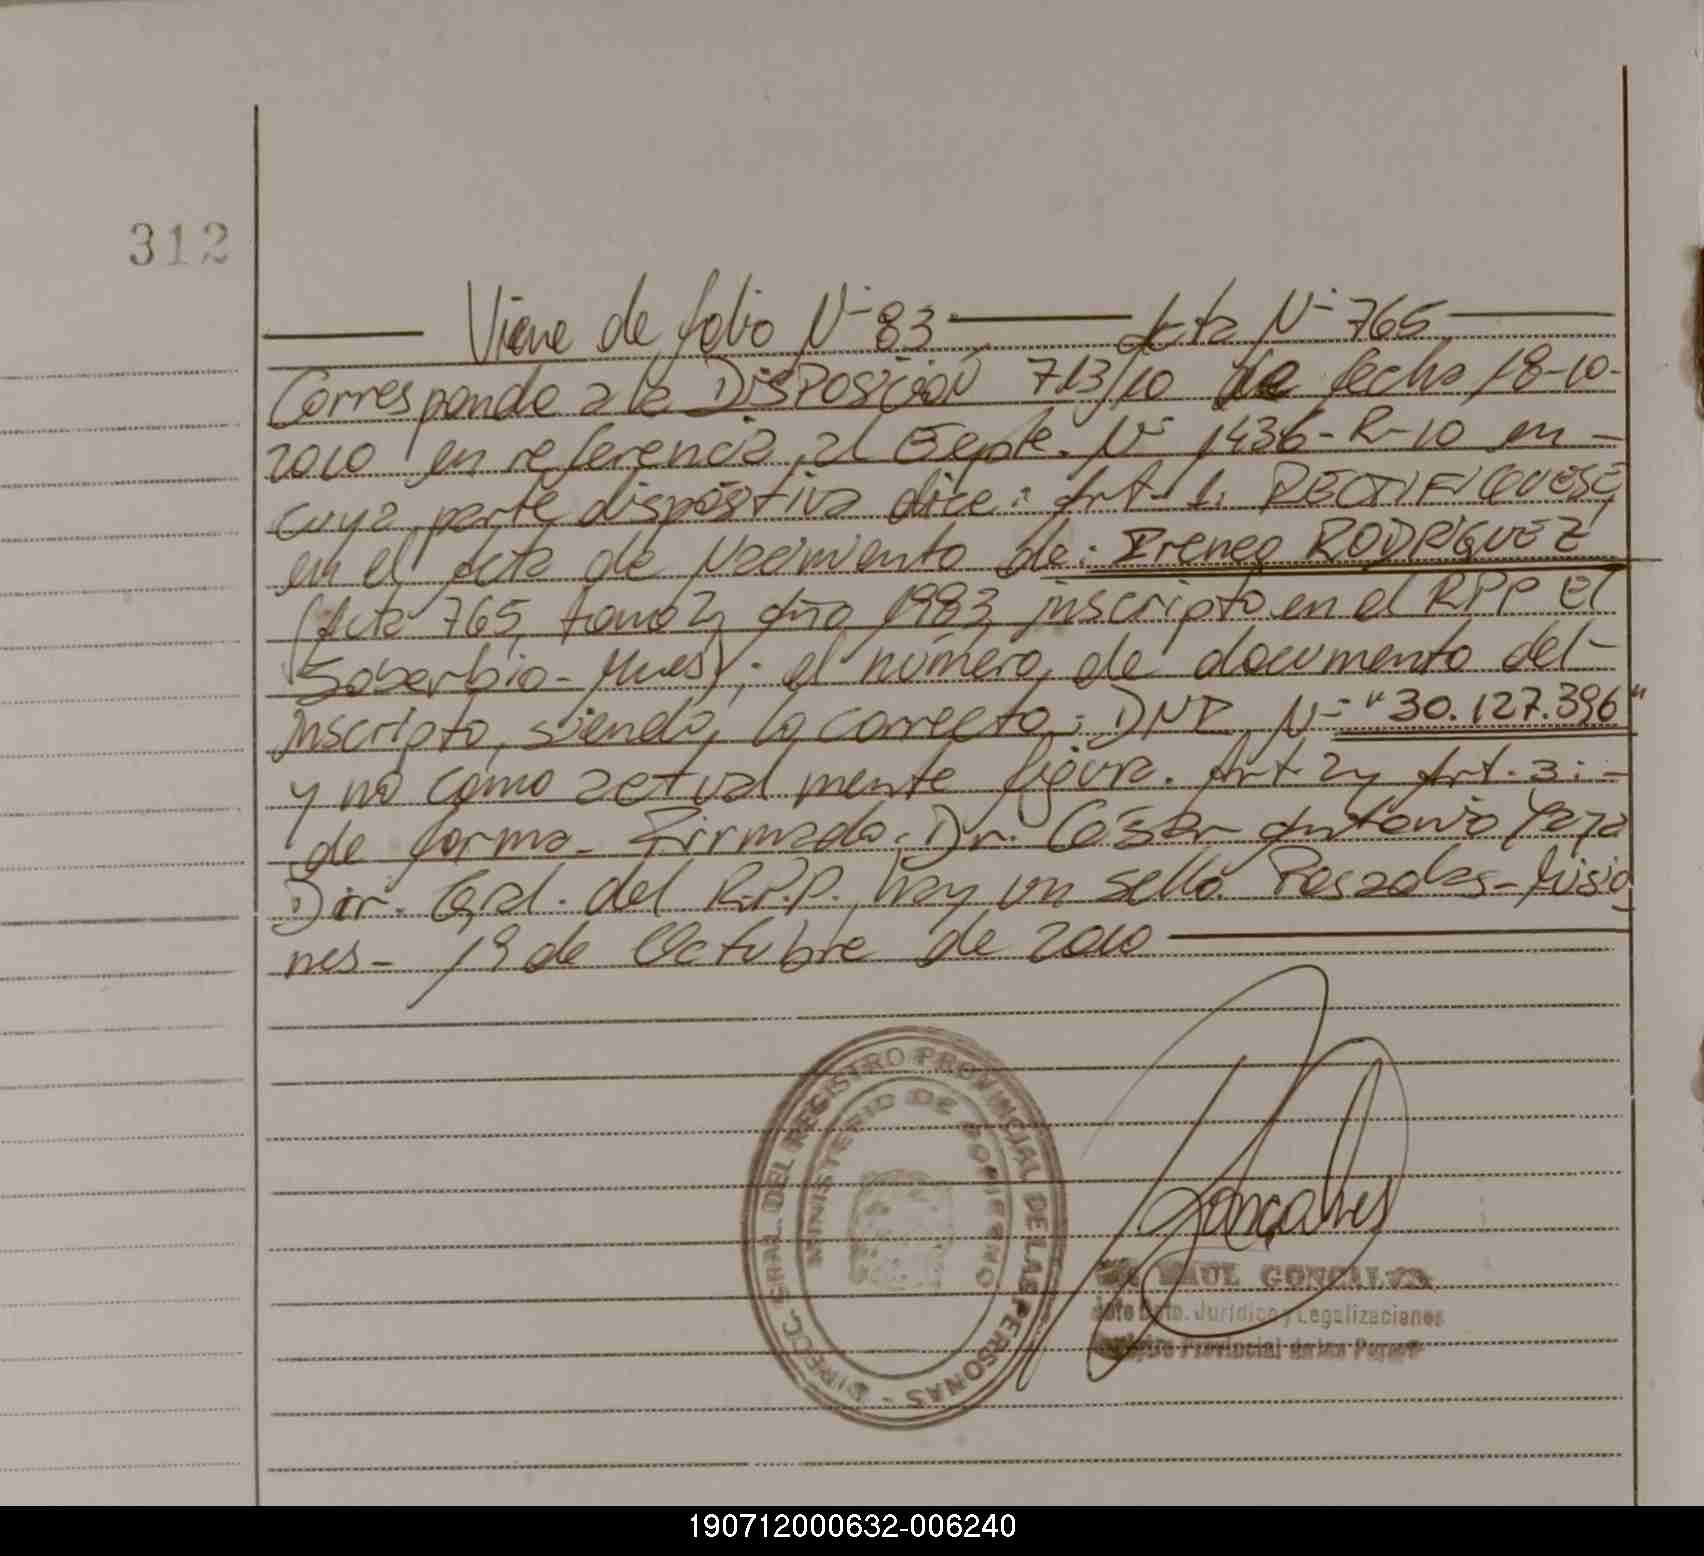 312
Viene de folio Nº 83 Acta Nº 765
Corresponde a la DISPOSICIÓN 713/10 de fecha 18-10-
2010 en referencia al Expte. Nº 1436-R-10 en -
cuya parte dispositiva dice: Art. 1: RECTIFIQUESE
en el Acta de Nacimiento de: Ireneo RODRIGUEZ
(Acta 765, tomo 2, año 1983 inscripto en el RPP El
Soberbio-Mnes); el número de documento del-
inscripto, siendo lo correcto: DNI Nº "30.127.396"
y no como actualmente figura. Art 2 y Art. 3: -
de forma. Firmado: Dr. César Antonio Yaya
Dir. Gral. del R.P.P. hay un sello. Posadas-Misio
nes- 19 de Octubre de 2010
DIRECC. GRAL. DEL REGISTRO PROVINCIAL DE LAS PERSONAS -
MINISTERIO DE GOBIERNO
Goncalves
RAUL GONCALVES
Jefe Dpto. Jurídico y Legalizaciones
Registro Provincial de las Personas
190712000632-006240